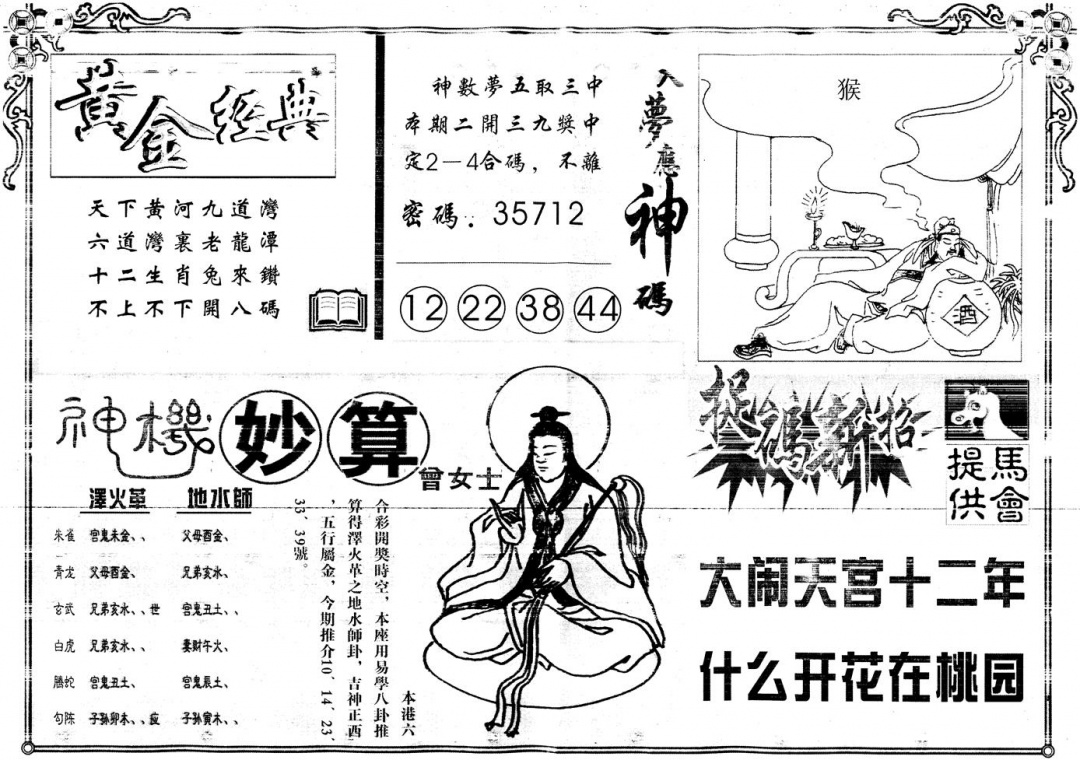 黄金經典
天下黃河九道灣
六道灣裏老龍潭
十二生肖兔來鑽
不上不下開八碼
神數夢五取三中
本期二開三九獎中
定2—4合碼，不離
密碼．35712
12 22 38 44
入夢應神碼
猴
酒
神機妙算
曾女士
澤火革 地水師
朱雀 宫鬼未金、、 父母酉金、、
青龙 父母酉金、 兄弟亥水、
玄武 兄弟亥水、、世 宫鬼丑土、、
白虎 兄弟亥水、、 妻財午火、
騰蛇 宫鬼丑土、 宫鬼辰土、
勾陈 子孫卯未、、应 子孫寅木、、
本港六
合彩開獎時空，本座用易學八卦推
算得澤火革之地水師卦，吉神正西
，五行屬金，今期推介10、14、23、
33、39號。
捉碼新招
馬會
提供
大闹天宫十二年
什么开花在桃园